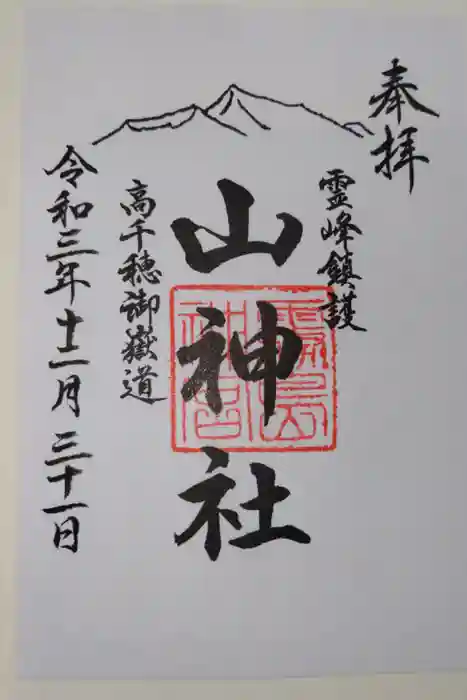 奉拝
霊峰鎮護
山神社
高千穂御嶽道
令和三年十二月三十一日
霧島
神宮